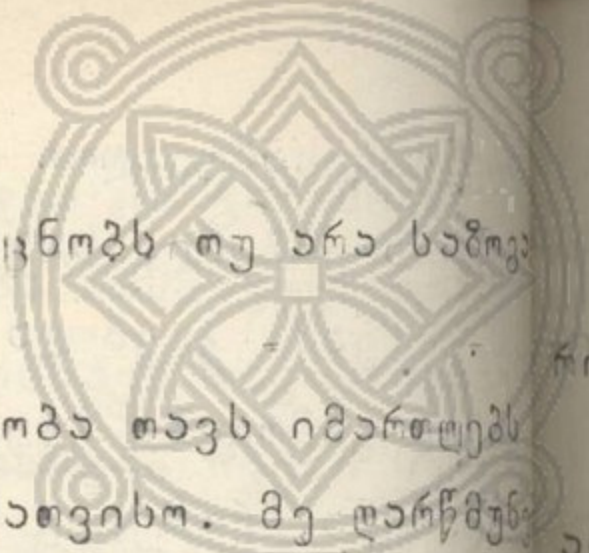 ცნობს თუ არა საზოგა
ობა თავს იმართლებს
ათვისო. მე დარწმუნ